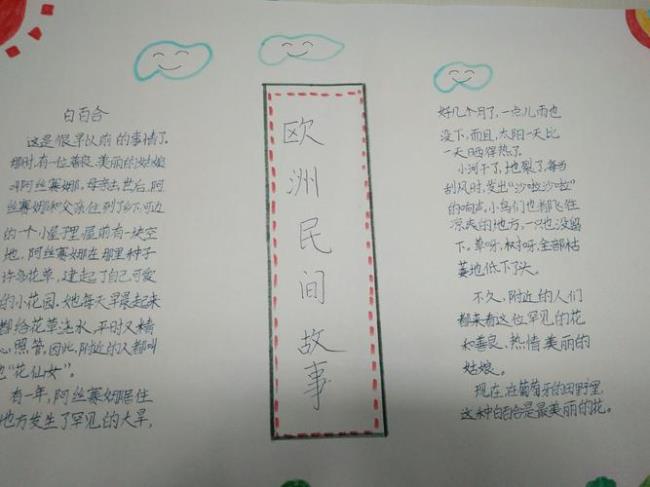 白百合
这是很早以前的事情了。
那时,有一位善良、美丽的姑娘
叫阿丝赛娜,母亲去世后,阿
丝赛娜和父亲住到了乡下河边
的一个小屋里,屋前有一块空
地,阿丝赛娜在那里种了
许多花草,建起了自己可爱
的小花园,她每天早晨起来
都给花草浇水,平时又精
心照管,因此,附近的人都叫
她“花仙女”。
有一年,阿丝赛娜居住
地方发生了罕见的大旱,
欧洲民间故事
好几个月了,一点儿雨也
没下,而且,太阳一天比
一天晒得热了。
小河干了,地裂了,每当
刮风时,发出“沙啦沙啦”
的响声,小鸟们也都飞往
凉爽的地方,一只也没留
下。草呀,树呀,全部枯
萎地低下了头。
不久,附近的人们
都来看这位罕见的花
和善良、热情美丽的
姑娘。
现在,在葡萄牙的田野里,
这种白百合是最美丽的花。